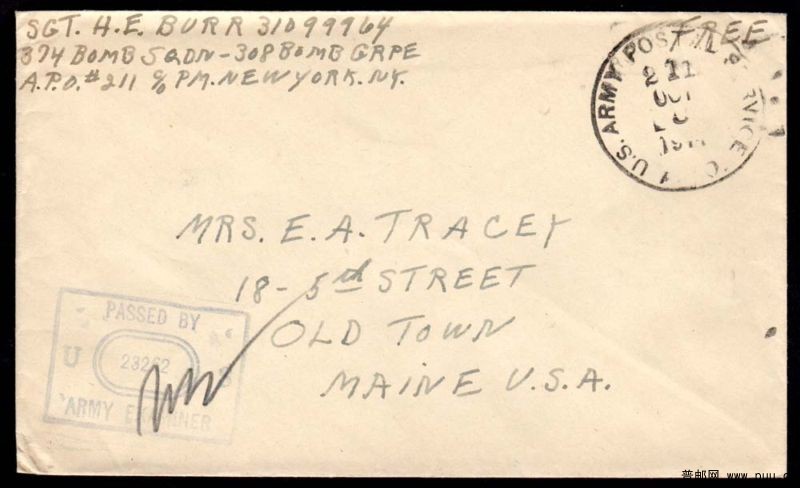 SGT. H.E. BURR 31099964
FREE
374 BOMB SQDN-308 BOMB GRPE
A.P.O.#211 c/o PM. NEW YORK. NY.
U.S. ARMY POSTAL SERVICE
211
OCT
MRS. E. A. TRACEY
18-5th STREET
OLD TOWN
MAINE U.S.A.
PASSED BY
U 23262 S
ARMY EXAMINER
普邮网 www.puu.c